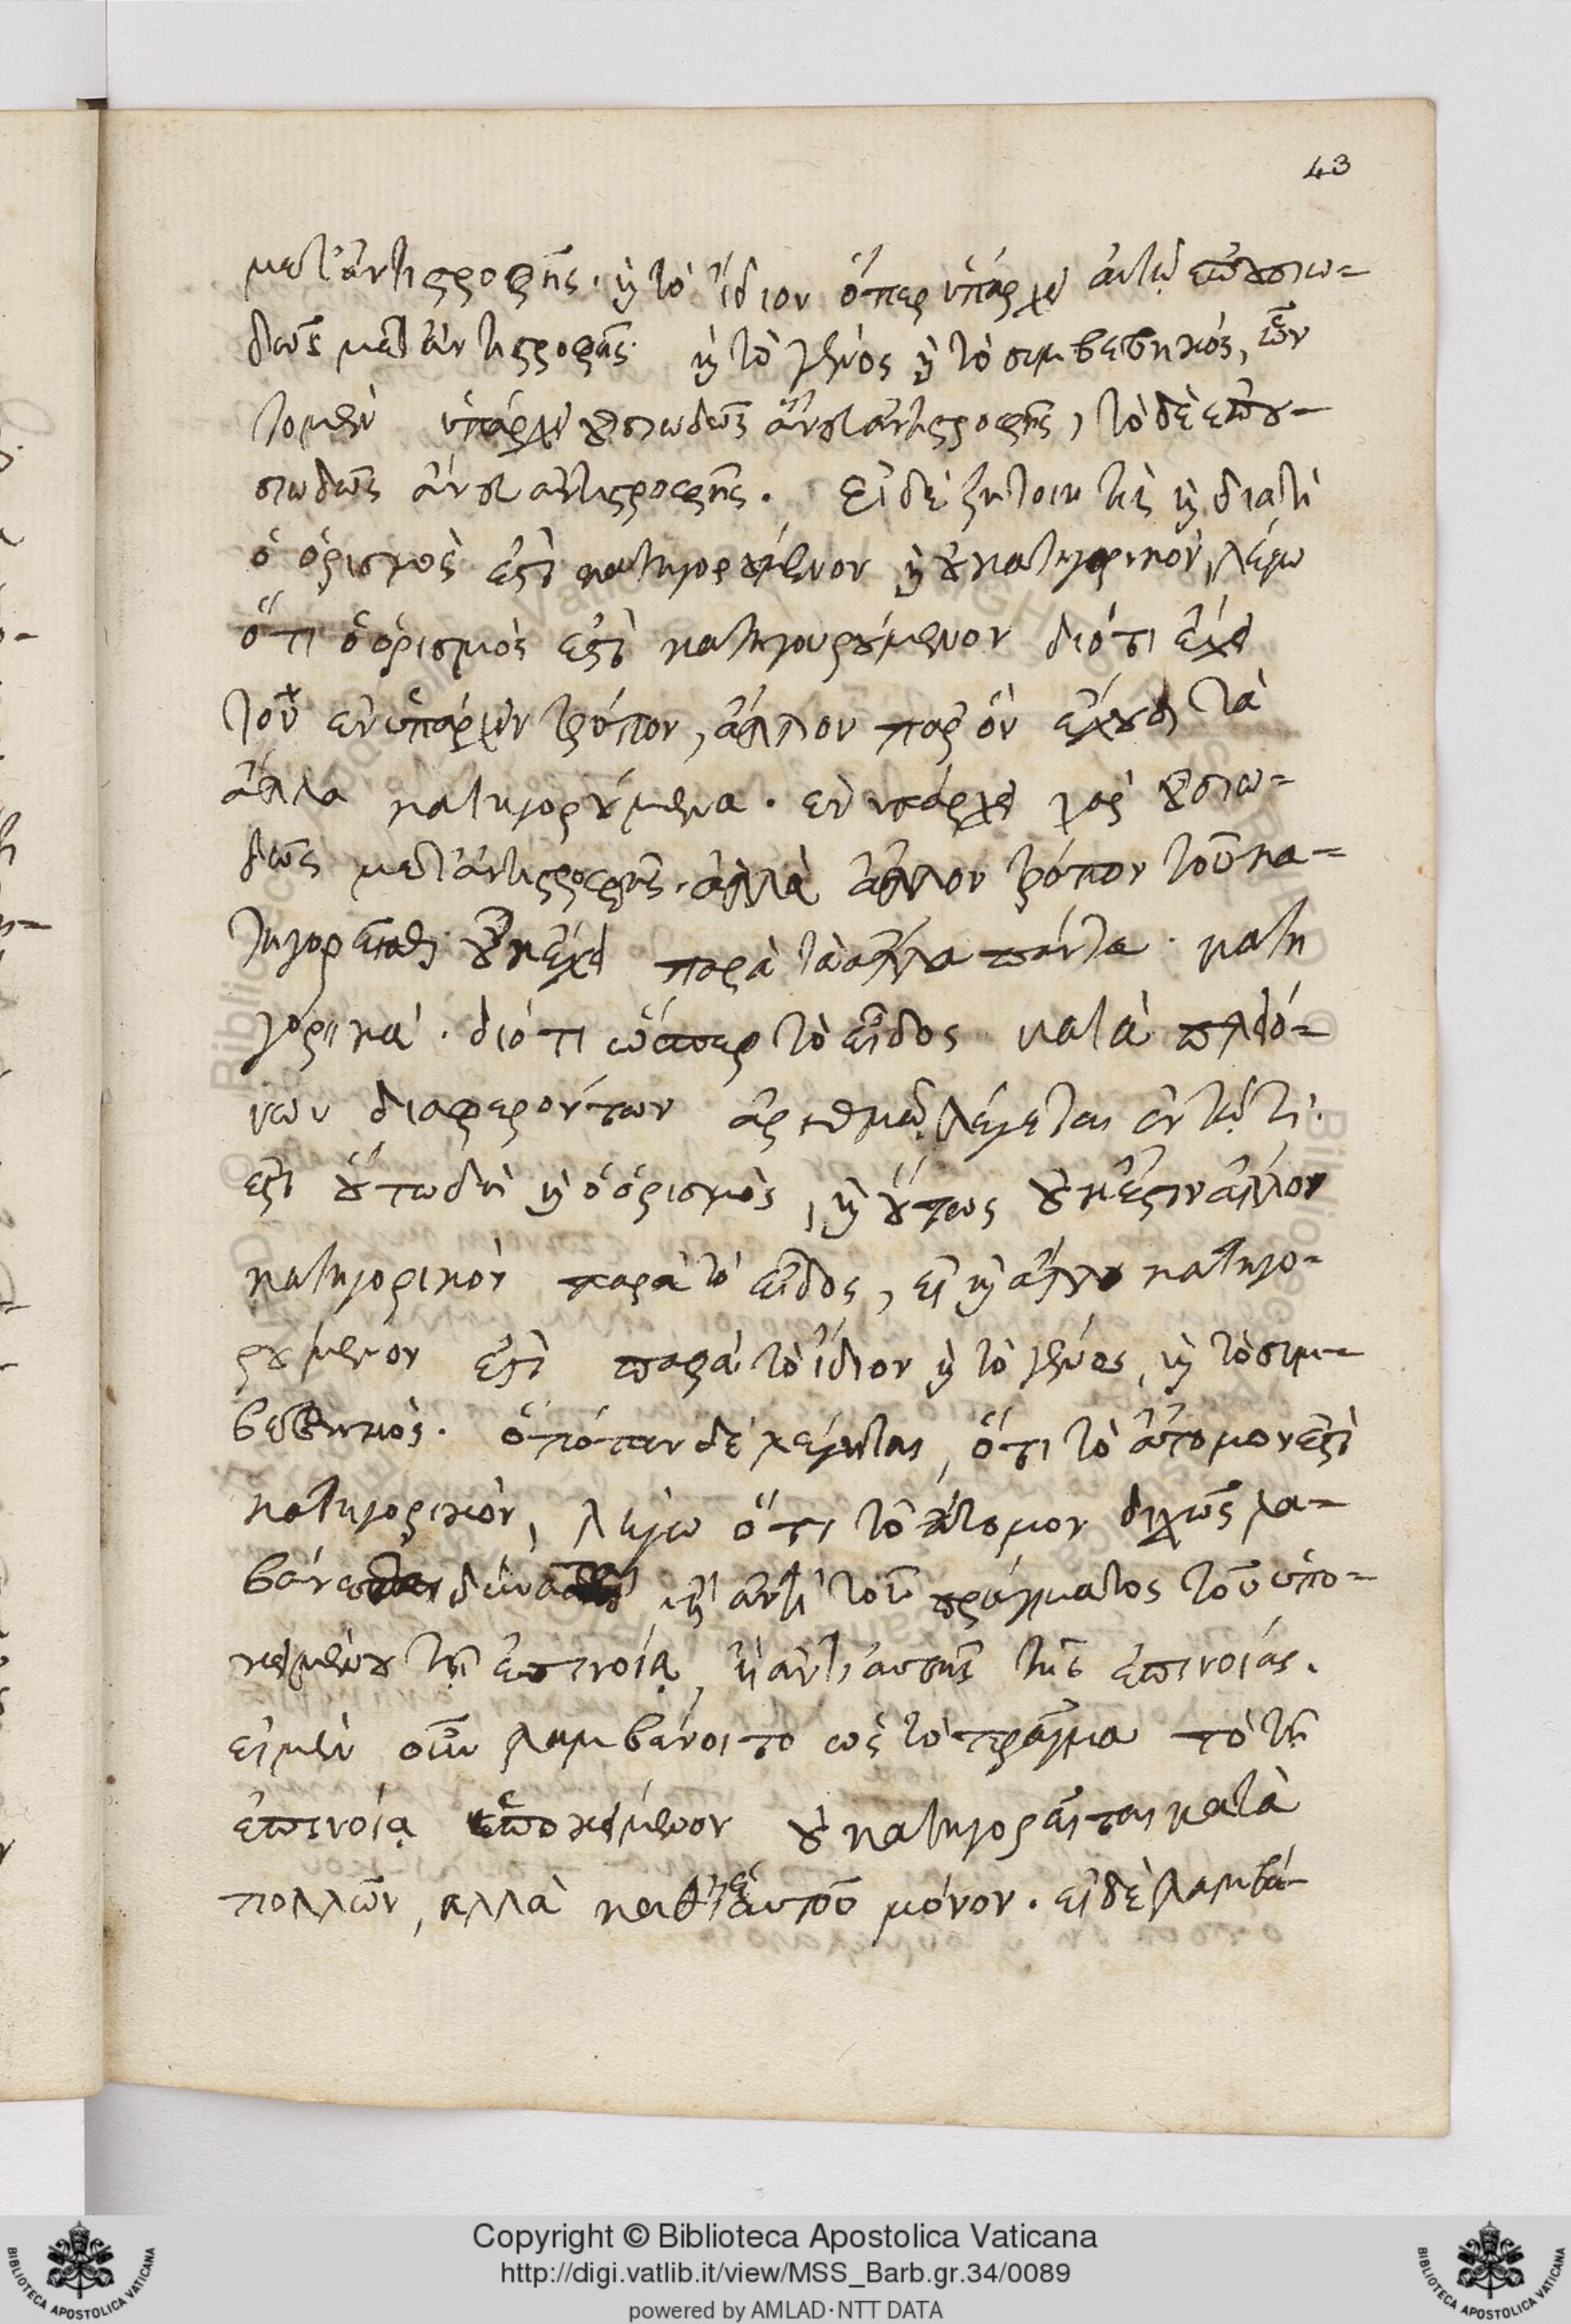 43
μετ' ἀντιστροφῆς. ἢ τὸ ἴδιον ὅπερ ὑπάρχει αὐτῷ ἐπουσιω-
δῶς μετ' ἀντιστροφῆς. ἢ τὸ γένος ἢ τὸ συμβεβηκός, ὧν
τομὲν ὑπάρχει οὐσιωδῶς ἄνευ ἀντιστροφῆς, τὸ δὲ επου-
σιωδῶς ἄνευ ἀντιστροφῆς. Εἰ δὲ ζητοίη τὶς ἢ διατὶ
ὁ ὁρισμὸς ἐστὶ κατηγορούμενον ἢ οὐ κατηγορικὸν, λέγω
ὅτι ὁ ὁρισμὸς ἐστὶ κατηγουρούμενον διότι ἔχει
τοῦ ενυπάρχειν τρόπον, ἄλλον παρ' ὃν ἔχουσι τὰ
ἄλλα κατηγορούμενα. ενυπάρχει γὰρ οὐσιω-
δῶς μετ' ἀντιστροφῆς. ἀλλὰ ἄλλον τρόπον τοῦ κα-
τηγορεῖσθαι οὐκ ἔχει παρὰ τὰ ἄλλα πάντα κατη
γορικά. διότι ὥσπερ τὸ εἶδος κατὰ πλειό-
νων διαφερόντων ἀριθμῷ λέγεται ἐν τῷ τί
ἐστι οὕτω δὴ ἢ ὁ ὁρισμὸς, ἢ οὕτως οὐκ ἔστιν ἄλλον
κατηγορικὸν παρὰ τὸ εἶδος, εἰ ἢ ἄλλο κατηγο-
ρούμενον ἐστὶ παρὰ τὸ ἴδιον ἢ τὸ γένος, ἢ τὸ συμ-
βεβηκὸς. ὁπόταν δὲ λέγηται, ὅτι τὸ ἄτομον ἐστὶ
κατηγορικὸν, λέγω ὅτι τὸ ἄτομον διχῶς λα-
βάνεσθαι δύναται ἢ ἀντὶ τοῦ πράγματος τοῦ ὑπο-
κειμένου τῇ ἐπινοίᾳ, ἢ ἀντὶ αυτῆς τῆς ἐπινοίας.
εἰ μὲν οὖν λαμβάνοιτο ὡς τὸ πρᾶγμα τὸ τῇ
ἐπινοίᾳ ὑποκείμενον οὐ κατηγορεῖται κατὰ
πολλῶν, αλλὰ καθ' ἑαυτοῦ μόνον. εἰ δὲ λαμβά-
Copyright © Biblioteca Apostolica Vaticana
http://digi.vatlib.it/view/MSS_Barb.gr.34/0089
powered by AMLAD·NTT DATA